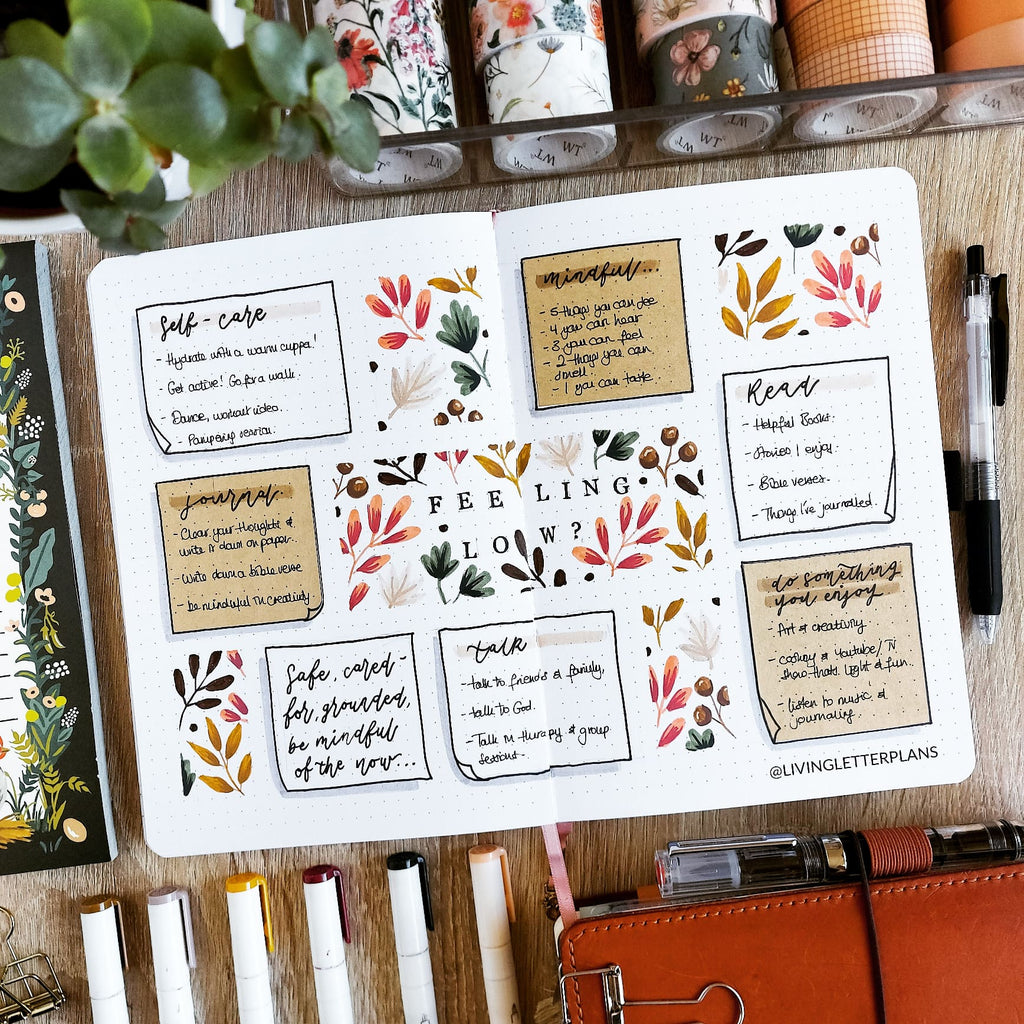 WT
WT
WT
WT
WT
WT
Self-care
- Hydrate with a warm cuppa!
- Get active! Go for a walk.
- Dance, workout video.
- Pampering session.
mindful...
- 5 things you can see
- 4 you can hear
- 3 you can feel
- 2 things you can
smell.
- 1 you can taste.
Read
- Helpful Books.
- Stories I enjoy.
- Bible verses.
- Things I've journalled.
journal.
- Clear your thoughts &
write it down on paper.
- Write down a bible verse
- be mindful in creativity.
FEELING
LOW?
do something
you enjoy
- Art & creativity.
- cooking & Youtube/TV
show thats light & fun.
- listen to music &
journaling.
Safe, cared-
for, grounded,
be mindful
of the now...
talk
- talk to friends & family,
- talk to God.
- Talk in therapy & group
sessions.
@LIVINGLETTERPLANS